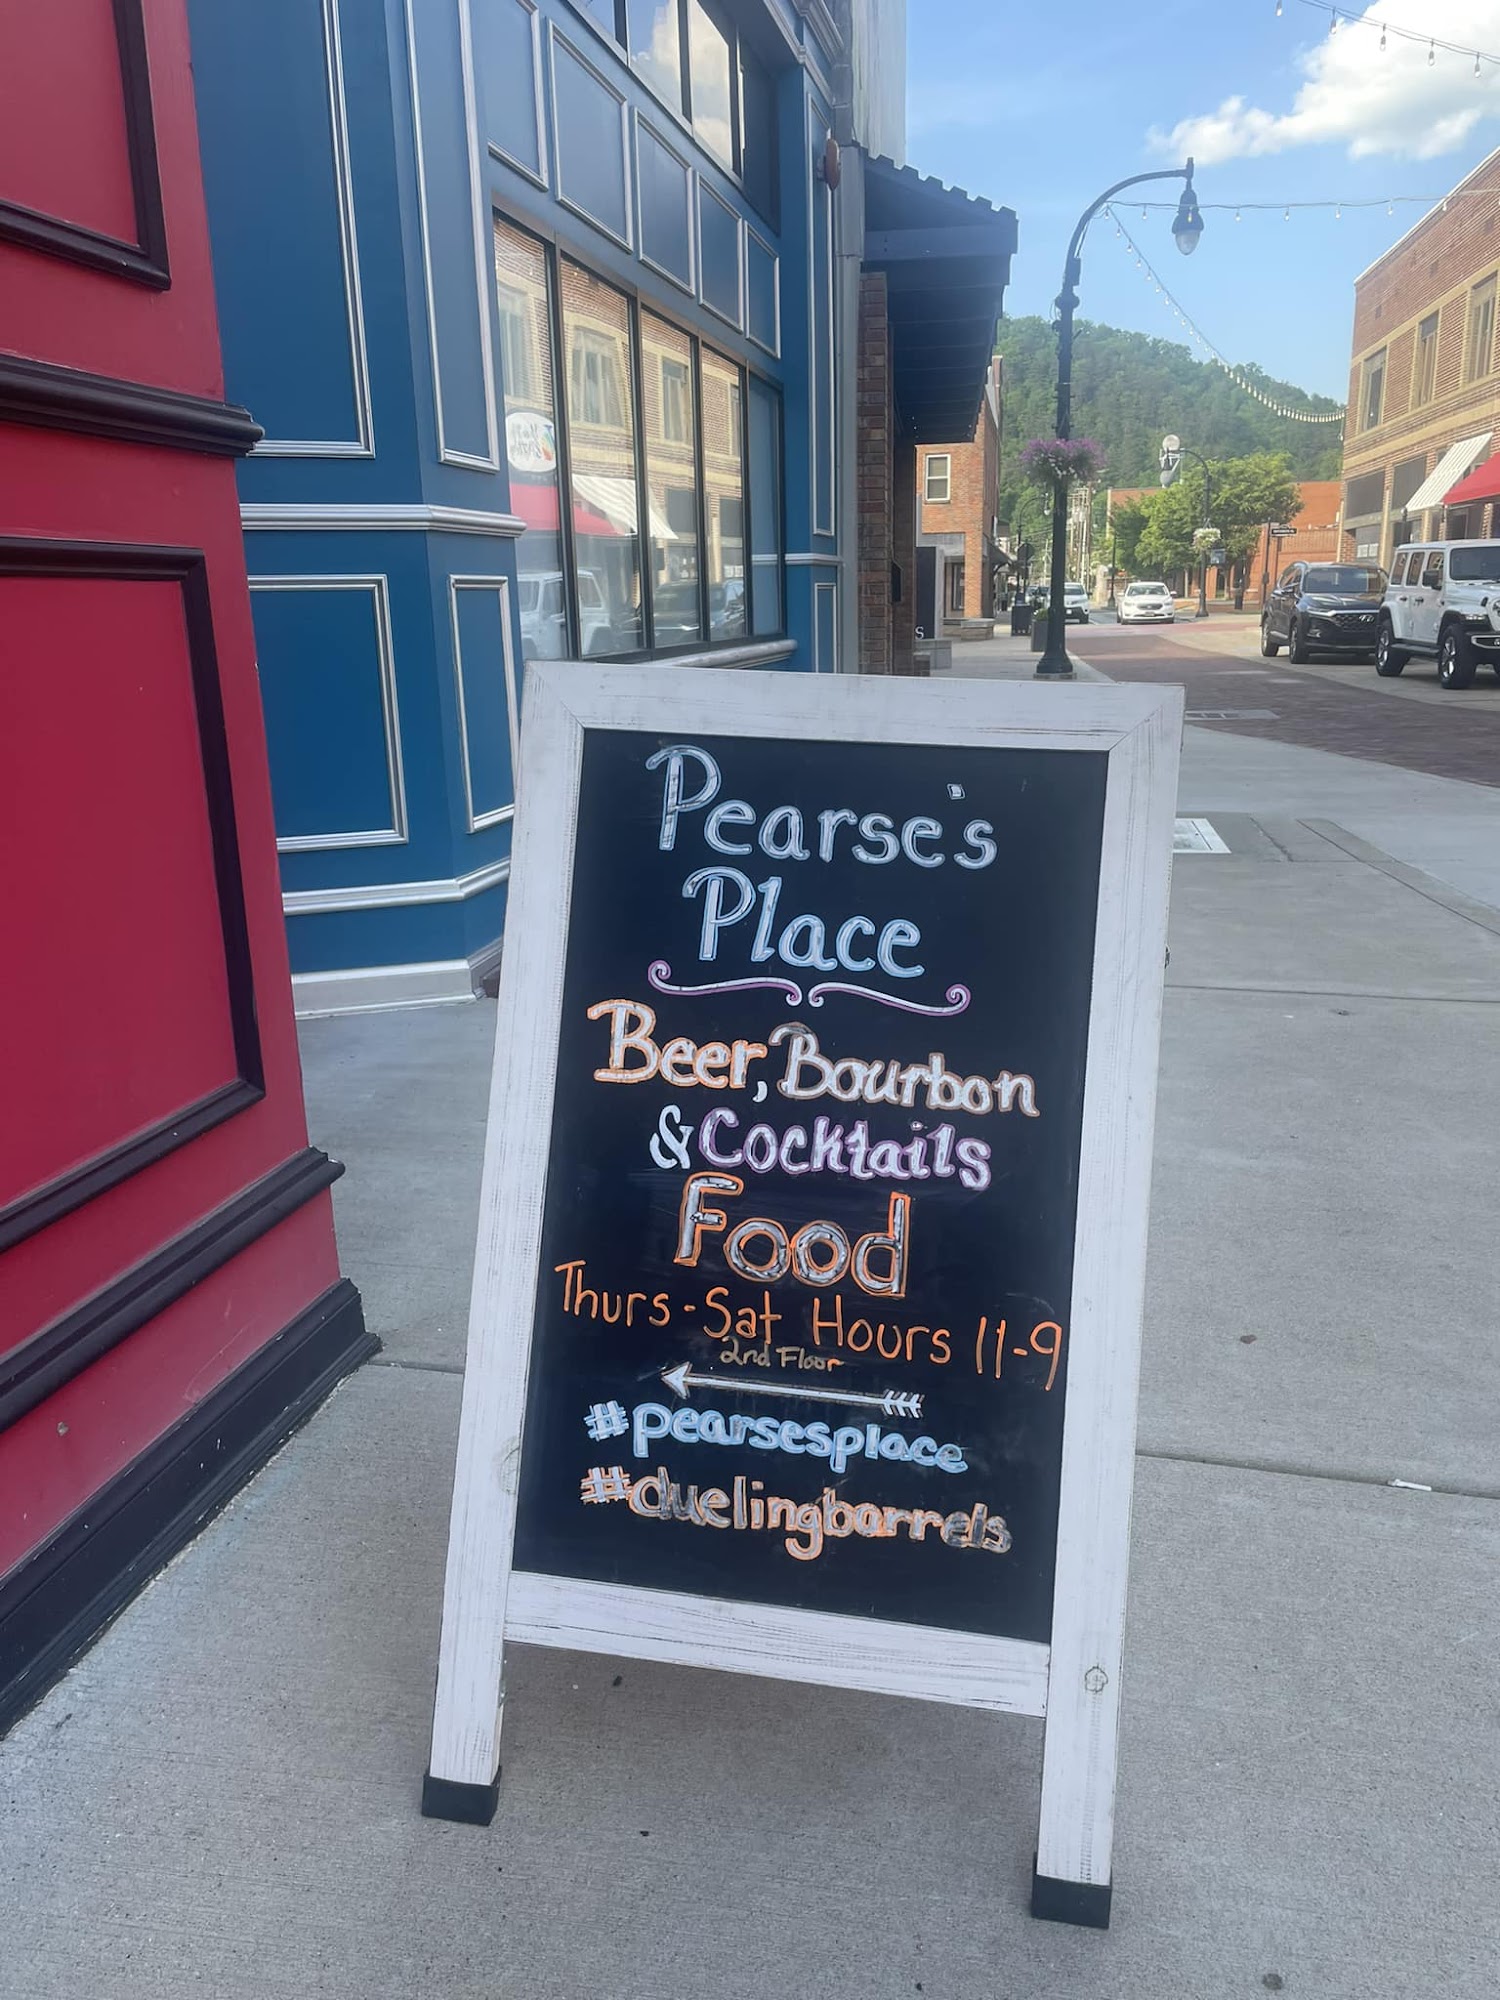 Pearse's
Place
Beer, Bourbon
& Cocktails
Food
Thurs-Sat Hours 11-9
2nd Floor
#pearsesplace
#duelingbarrels